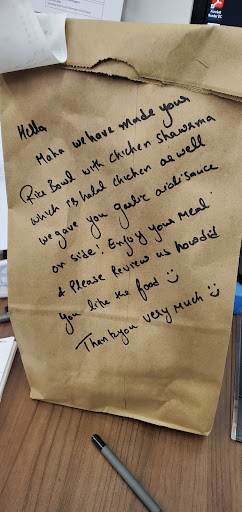 Hello
Maha we have made your
Rice Bowl with chicken shawrma
which is halal chicken as well
we gave you garlic aioli sauce
on side! Enjoy your Meal.
& Please Review us how did
you like the food
Thankyou very Much